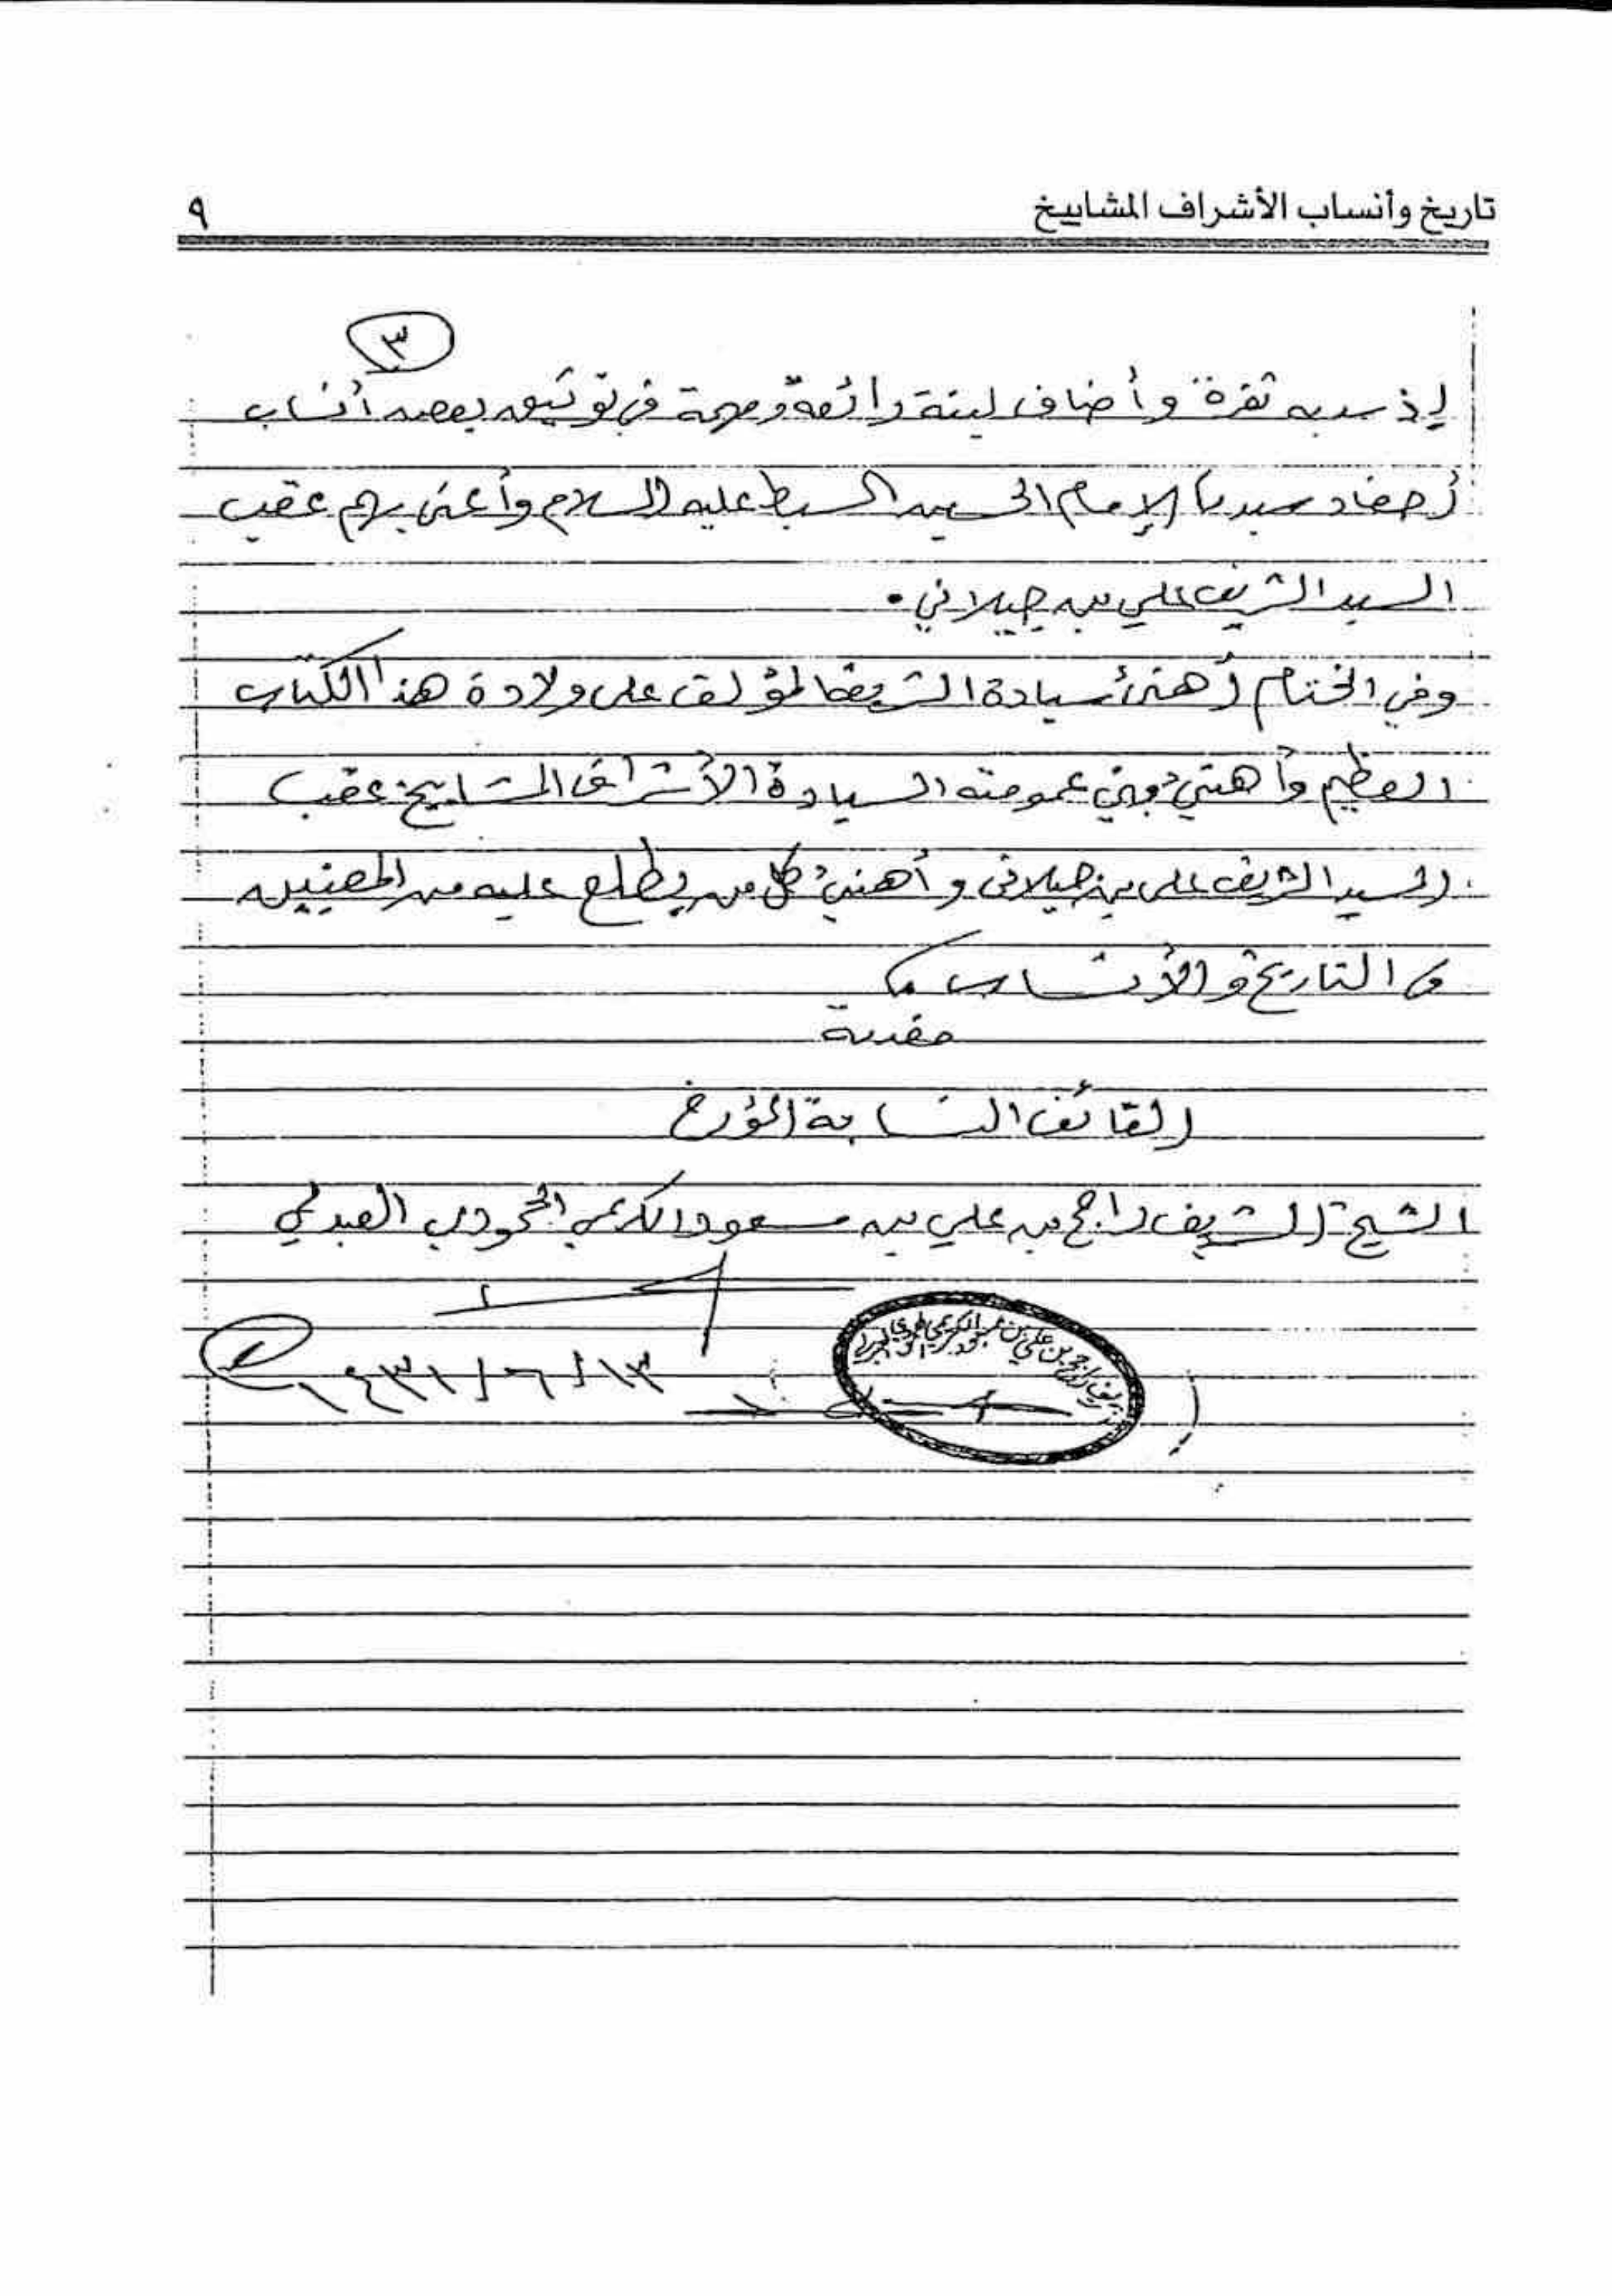 تاريخ وأنساب الأشراف المشاييخ ٩
٣
إذ سد به ثغرة وأضاف لبنة رائعة ومهمة في توثيق بعض أنساب
أحفاد سيدنا الإمام الحسين السبط عليه السلام وأعني بهم عقب
السيد الشريف علي بن جيلاني.
وفي الختام أهنئ سيادة الشريف المؤلف على ولادة هذا الكتاب
العظيم وأهنئ بني عمومته السادة الأشراف المشاييخ عقب
السيد الشريف علي بن جيلاني وأهنئ كل من يطلع عليه من المعنيين
في التاريخ والأنساب
مقدمه
القائف النسابة المؤرخ
الشيخ الشريف راجح بن علي بن مسعود الكريمي الحمودي العبدلي
١٤٣١/٦/١٣